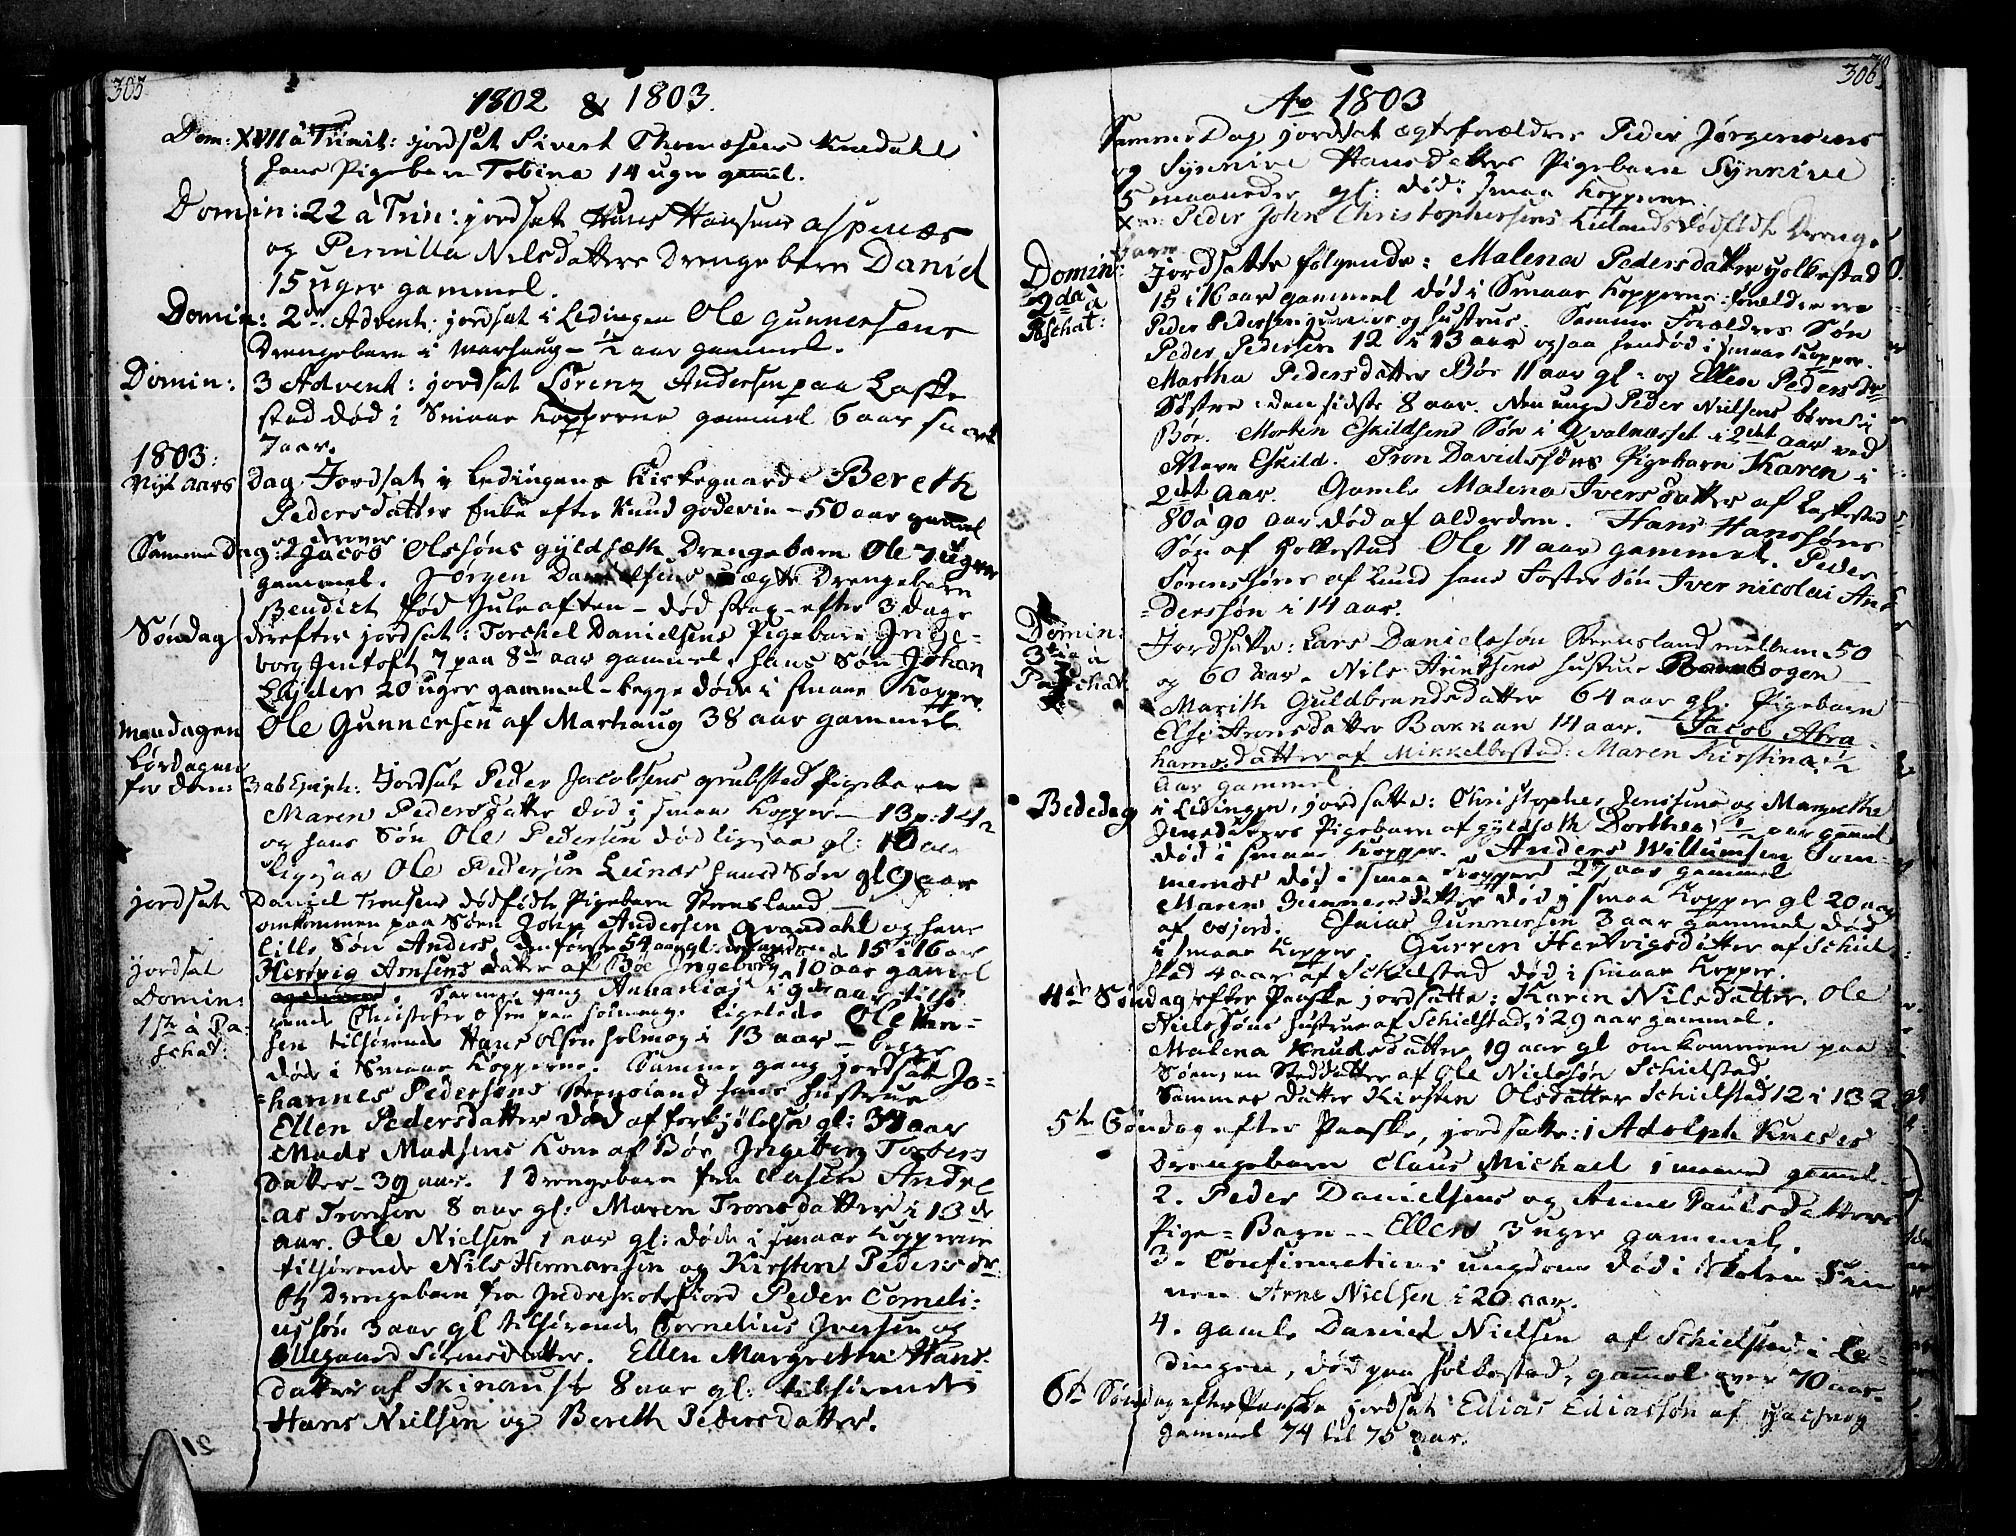 305
1802 & 1803.
Dom: XVII à Trinit: jordsat Sivert Thomæsens
hans Pigebarn Tobina 14 uger gamel.
Domin: 22 à Trin: jordsat Hans Hansens Aspenæs
og Pernilla Nilsdatters Drengebarn Daniel
15 uger gammel.
Domin: 2den Advent: jordsat i Lødingen Ole Gunnersens
Drengebarn i Marhaug - ½ aar gammel.
Domin: 3 Advent: jordsat Lorenz Andersen paa Laske
stad død i Smaae Kopperne gammel 6 aar snart
7 aar.
1803:
Nyt aars Dag Jordsat i Lødingens Kirkegaard Bereth
Pedersdatter Enke efter Knud Godevin - 50 aar gammel
Samme Dag: Jacob Olssøns Gyldsæth Drengebarn Ole 7 uger
gammel. Jørgen Danielsens uægte Drengebarn
Bendict fød Juleaften - død strax efter 3 dage
Søndag derefter jordsat: Torchel Danielsens Pigebarn Inge-
borg Jentoft 7 paa 8de aar gammel, hans Søn Johan
20 uger gammel - begge døde i smaae Kopper.
Mandagen Ole Gunnersen af Marhaug 38 aar gammel
Lørdagen
før Dom: 3 ab Epiph: Jordsat Peder Jacobsens Grubstad Pigebarn
Maren Pedersdatter død i smaae Kopper - 13 p: 14
og hans Søn Ole Pedersen død ligesaa gl: 10 aar
Ligesaa Ole Pedersen Leinæs hans Søn gl 9 aar
jordsat Daniel Tronsens dødfødte Pigebarn Steensland
omkommen paa Søen John Andersen Qvandahl og hans
lille Søn Anders den første 54 aar gl. den anden 15 i 16 aar
jordsat Hertvig Arnsens datter af Bøe Ingeborg 10 aar gamel
Domin: Samme gang Annanias i 9de aar tilhø
1ste à Pa- rende Christofer Olsen paa holmog. Ligeledes Ole Han-
schat: sen tilhørende Hans Olsen holmog i 13 aar - begge
døde i Smaae Kopperne. Samme gang jordsat Jo-
hannes Pedersøns Steensland hans Hustrue
Ellen Pedersdatter død af forkjølelse gl: 34 aar
Mads Madsens Kone af Bøe, Ingeborg Torbers
datter - 39 aar. 1 Drengebarn fra Andre
as Tronsen 8 aar gl: Maren Tronsdatter i 13de
aar. Ole Nielsen 1 aar gl: døde i smaae Kopperne
tilhørende Nils Hermansen og Kirsten Pedersdr
Et Drengebarn fra Indreskotsfiord Peder Corneli-
ussøn 3 aar gl tilhørende Cornelius Iversen og
Ellegaard Sørensdatter. Ellen Margrethe Hans-
datter af Skinaust 8 aar gl: tilhørende
Hans Nielsen og Bereth Pedersdatter.
306
Ao 1803
Samme Dag jordsat ægteforældres Peder Jørgensens
og Synnive Hansdatters Pigebarn Synnive
5 maaneder gl: død i smaa Kopperne.
Peder John Christophersens dødfødte Drenge-
barn
Domin: Jordsatte følgende: Malena Pedersdatter Holkestad
2da à 15 i 16 aar gammel død i Smaae Kopperne: forældrene
Paschat: Peder Pedersen og hustrue. Samme Forældres Søn
Peder Pedersen 12 i 13 aar ogsaa hendød i smaae Kopper.
Martha Pedersdatter Bøe 11 aar gl - og Ellen Pedersdr
Søstre: den sidste 8 aar. Den unge Peder Nielsens børn i
Bøe. Morten Eskildsens Søn i Qvalnæsset i 2det aar ved
Navn Eskild. Tron Davidssøns Pigebarn Karen i
2det aar. Gamle Malena Iversdatter af Laskestad
80 à 90 aar død af alderdom. Hans Hanssøns
Søn af Holkestad Ole 11 aar gammel. Peder
Sørenssøns af Lund hans Foster Søn Iver Nicolai An-
derssøn i 14 aar.
Domin: Jordsatte: Lars Danielssøn Steensland mellem 50
3tia à og 60 aar. Nils Arentsens hustrue
Paschat: Marith Guldbrandsdatter 64 aar gl: Pigebarn
Else Aronsdatter Barkan 14 aar. Jacob Abra-
hams datter af Mikkelbostad: Maren Kirstina ½
aar gammel
Bededag i Lødingen, jordsatte: Christopher Jenssens og Margrethe
Jensdatters Pigebarn af Gyldsæth Dorthea ½ aar gamel
død i smaae Kopper. Anders Willumsen Tom-
mernæs død i smaa Kopper 27 aar gammel
Maren Gunnersdatter død i smaa Kopper gl 20 aar
af Øsjord. Esaias Gunnersen 3 aar gammel død
i smaae Kopper Gurren Hertvigsdatter af Schiel
stad 4 aar af Schielstad død i smaae Kopper.
4de Søndag efter Paaske jordsatte: Karen Nilsdatter, Ole
Nielssøns hustrue af Schielstad, i 29 aar gammel.
Malena Knudsdatter 19 aar gl omkommen paa
Søen, en Steddatter af Ole Nielssøn Schielstad.
Sammes datter Kirsten Olsdatter Schielstad 12 i 13
5te Søndag efter Paaske, jordsatte: 1 Adolph Kneses
Drengebarn Claus Michael 1 maaned gamel.
2. Peder Danielsens og Anne Paulsdatters
Pige=Barn -- Ellen 3 uger gammel.
3. Confirmations ungdom død i Skolen Fin
nen Arne Nielsen i 20 aar.
4. Gamle Daniel Nielsen af Schielstad i Lø-
dingen, død paa Holkestad, gammel over 70 aar.
6te Søndag efter Paaske jordsat Elias Eliassøn af
gammel 74 til 75 aar.